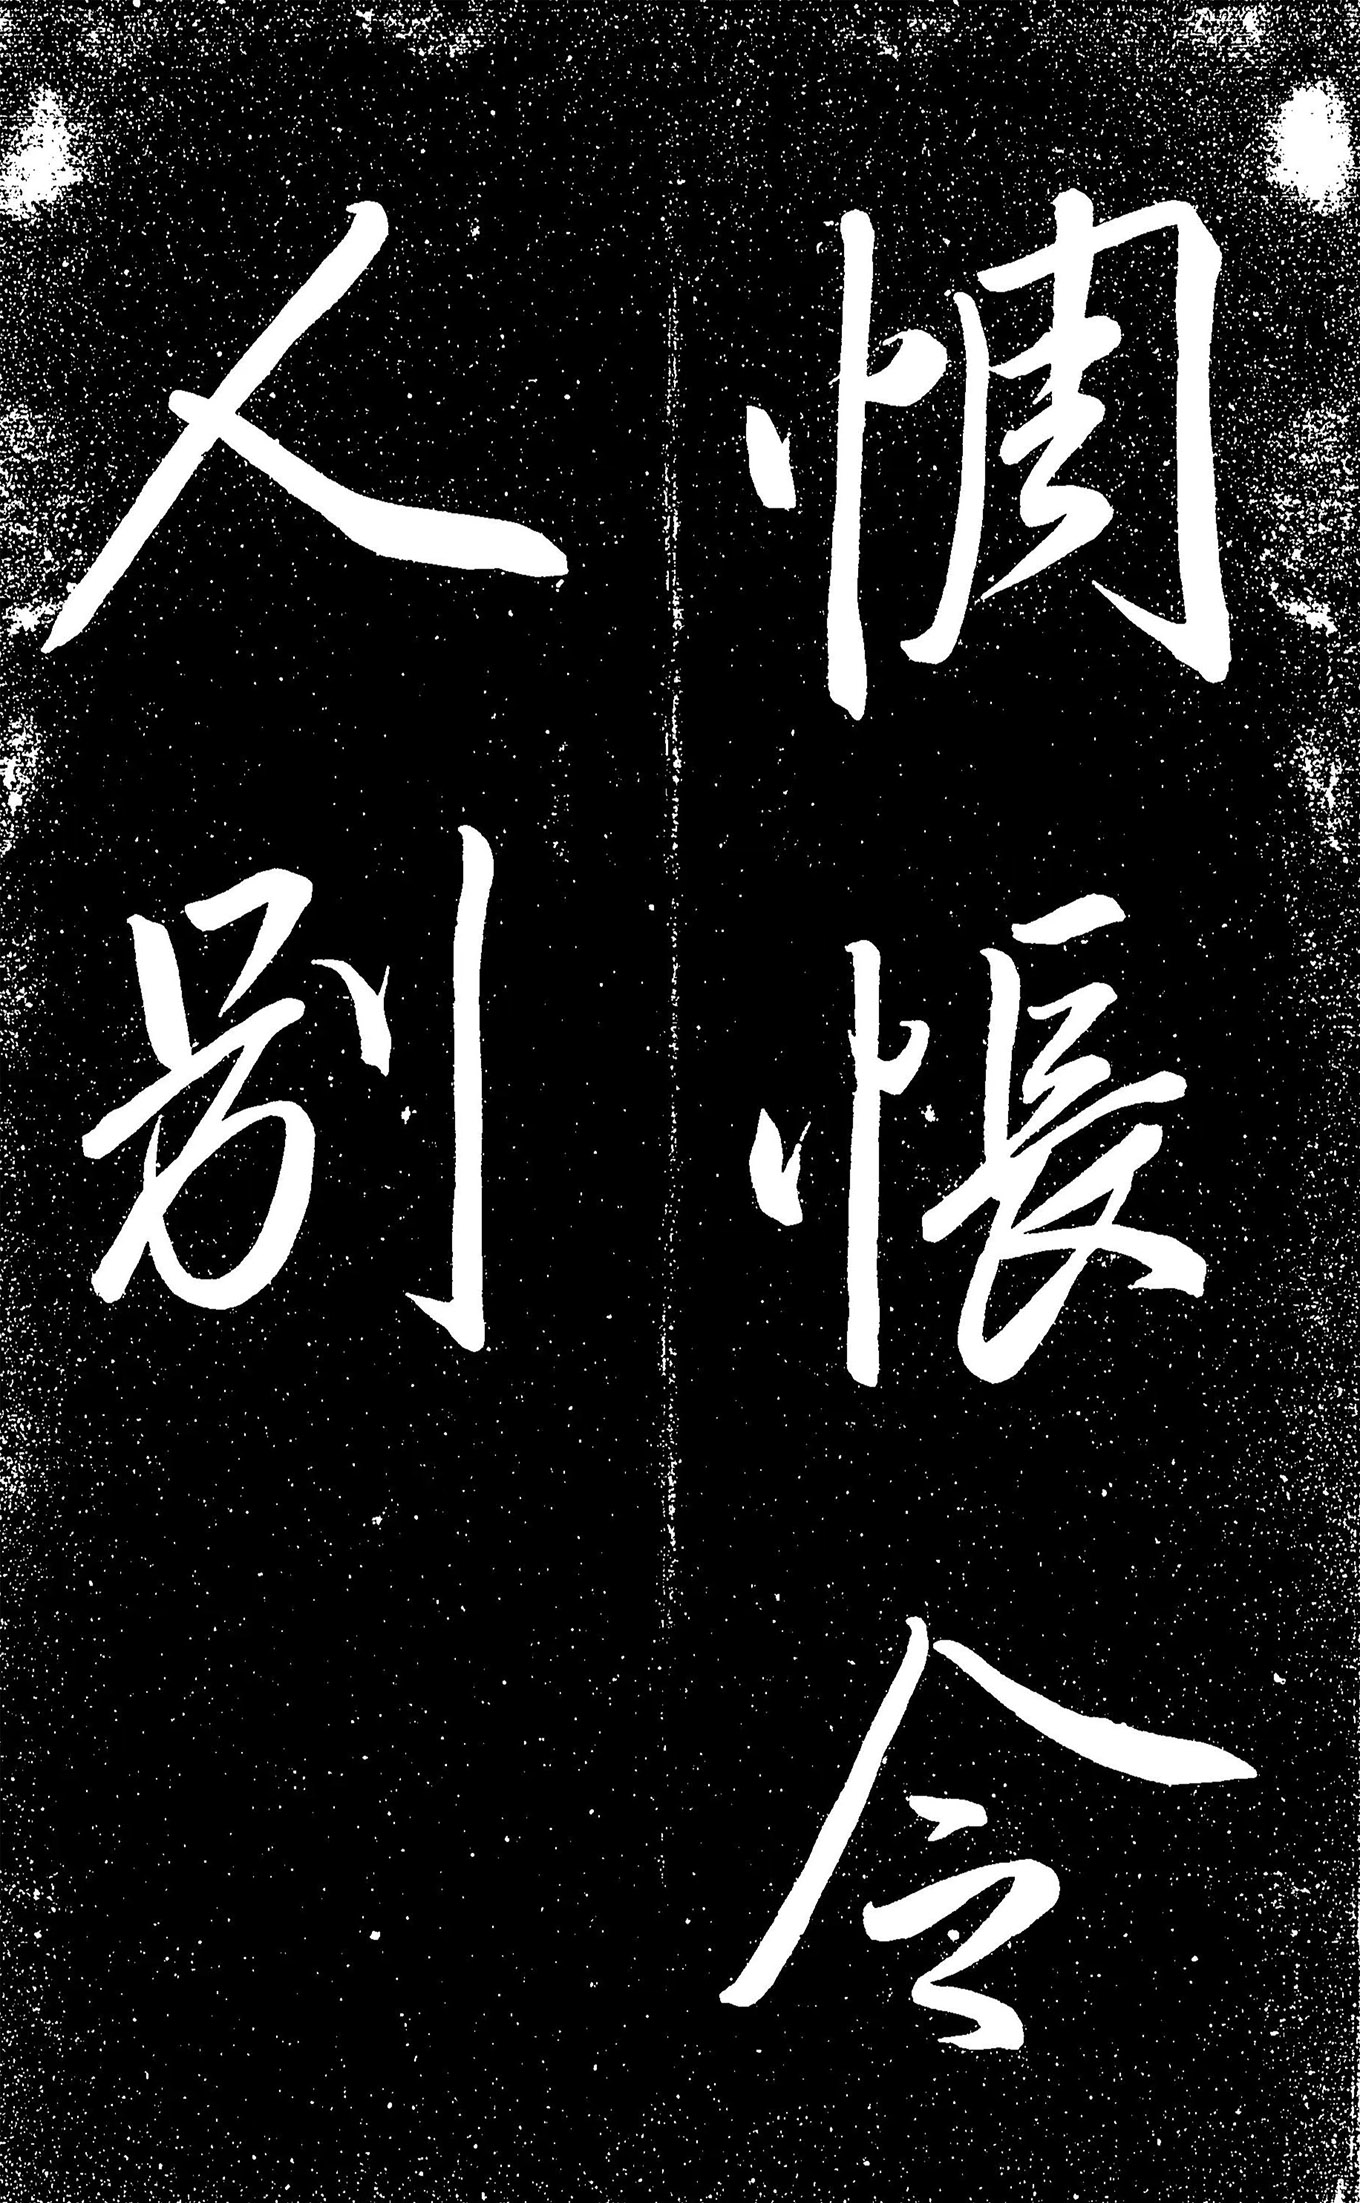 惆悵令
人別